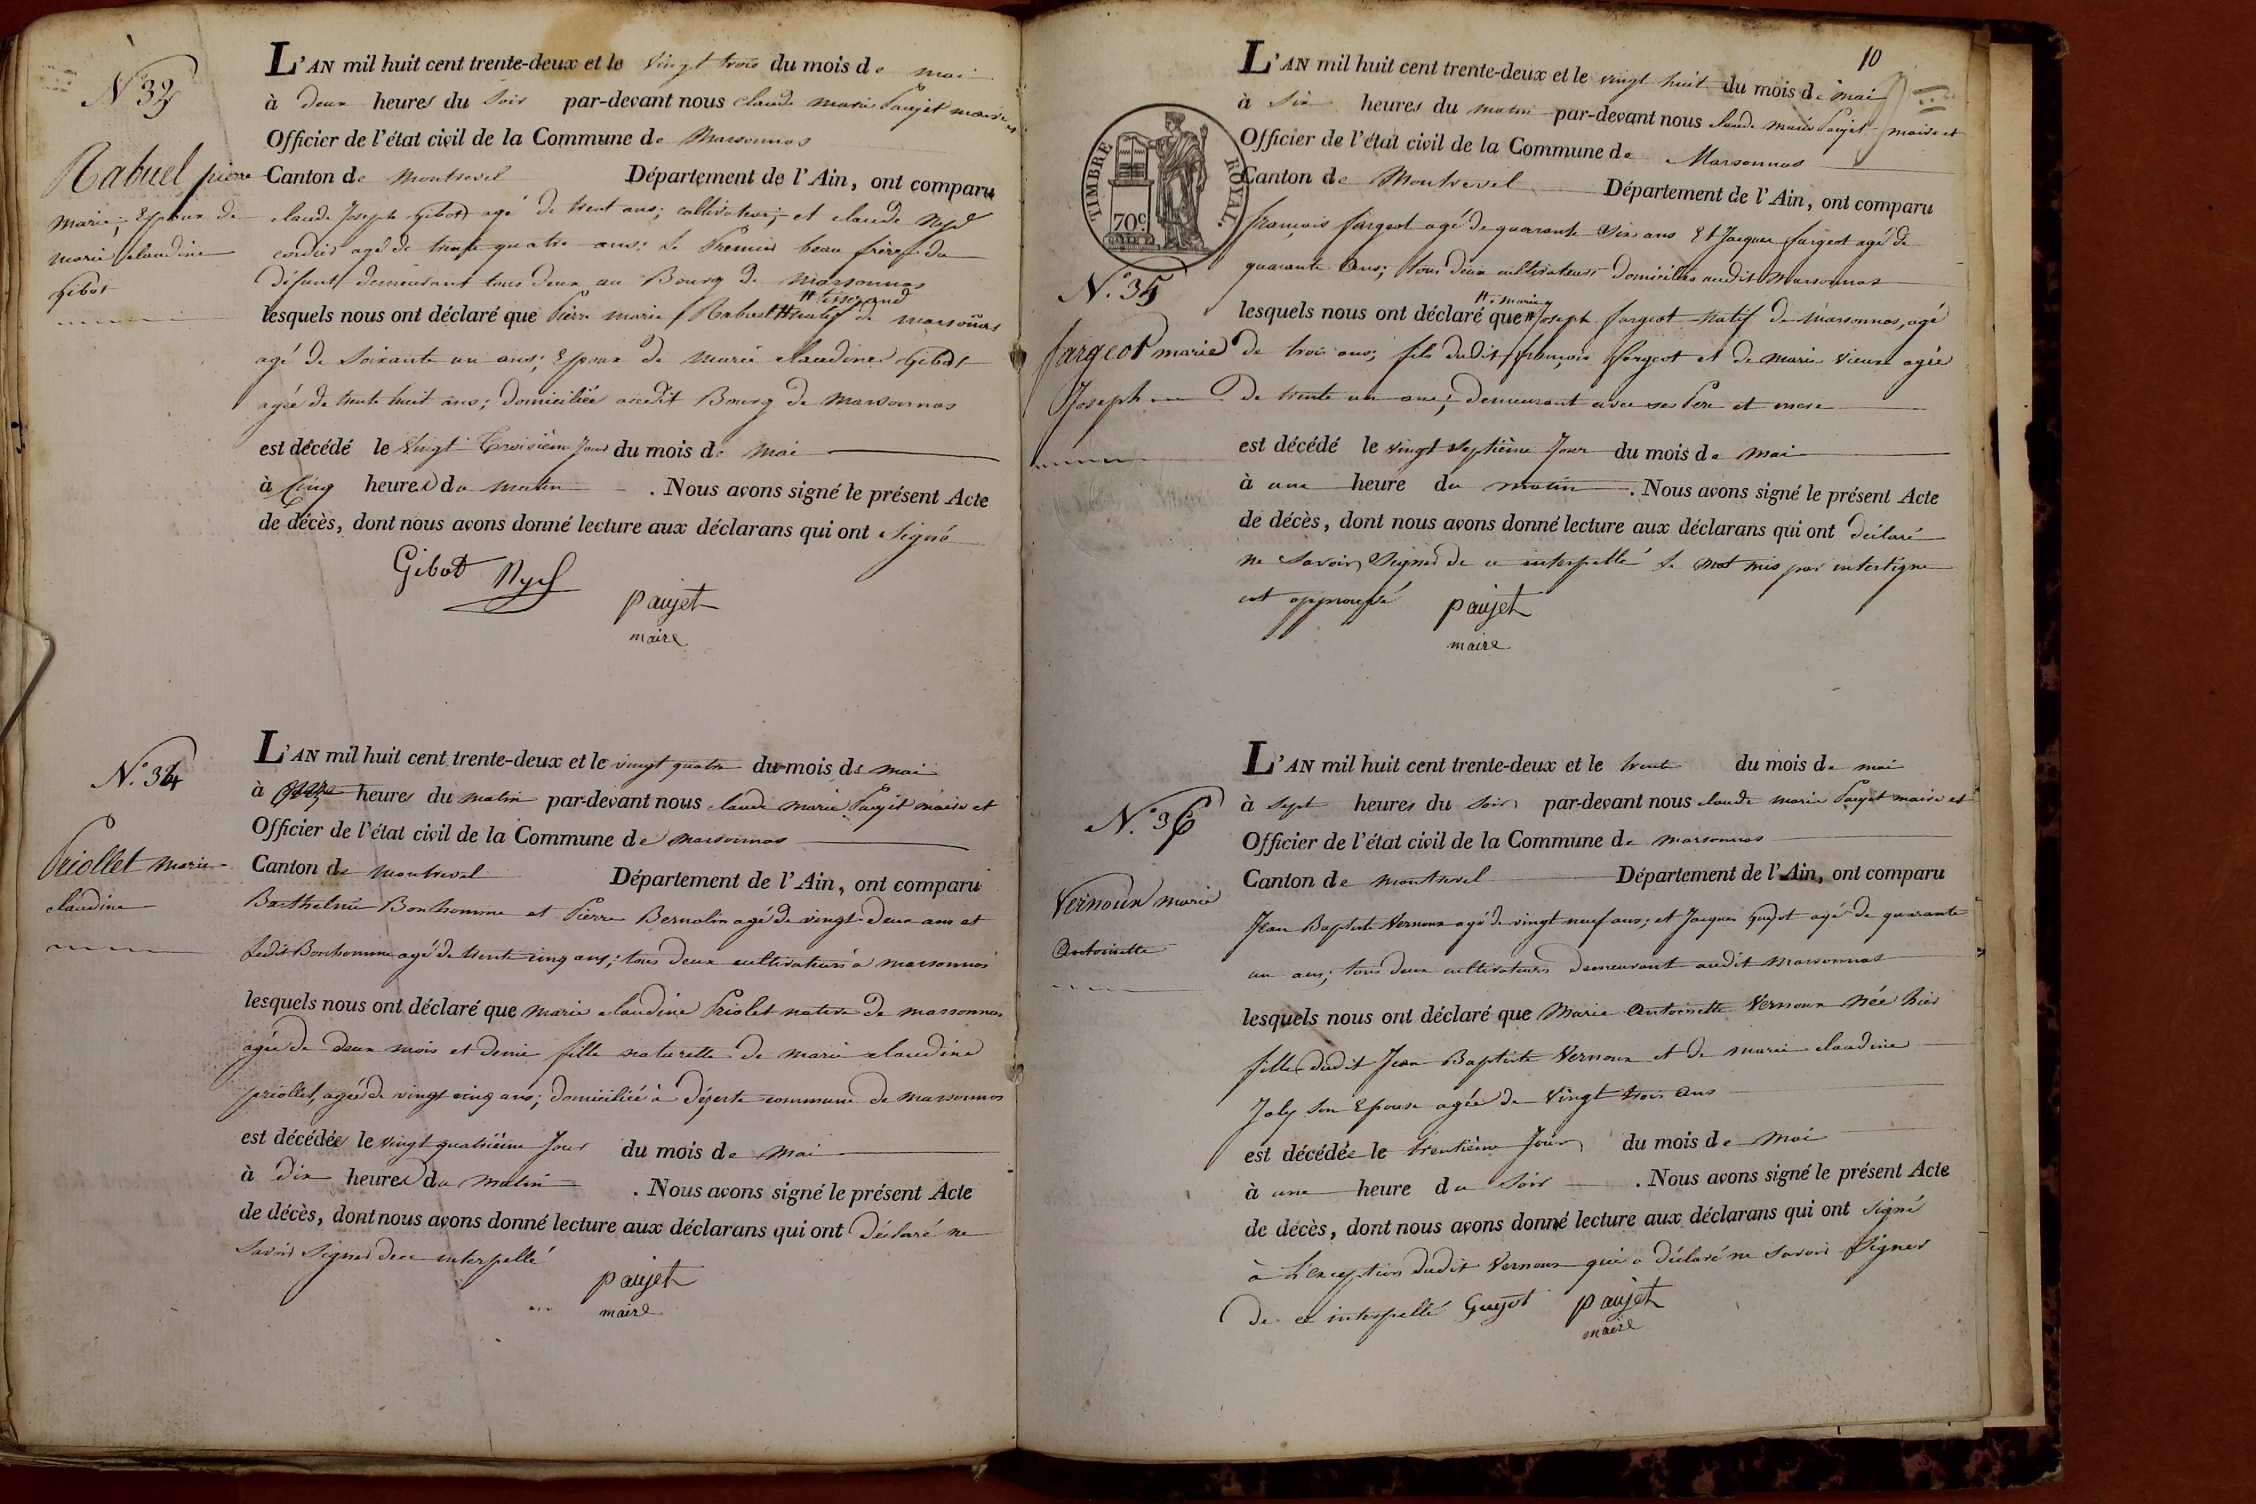 N.° 33
Rabuel pierre
marie, Epoux de
marie claudine
Gibot
L'AN mil huit cent trente-deux et le vingt trois du mois de mai
à deux heures du soir par-devant nous claude marie Paujet maire et
Officier de l'état civil de la Commune de Marsonnas
Canton de Montrevel Département de l'Ain, ont comparu
claude Joseph Gibot agé de trent ans; cultivateur; et claude Nyd
cordier agé de trente quatre ans: le Premier beau frère du
Défunt demeurant tous deux au Bourg de Marsonnas
# tisserand
lesquels nous ont déclaré que Pierre marie Rabuel # natif de marsonnas
agé de Soixante un ans; Epoux de marie claudine Gibot
agée de trente huit ans; domiciliée audit Bourg de Marsonnas
est décédé le vingt troisième Jour du mois de Mai
à Cinq heures du matin . Nous avons signé le présent Acte
de décès, dont nous avons donné lecture aux déclarans qui ont signé
Gibot Nyd
paujet
maire
N.° 34
Priollet marie
claudine
L'AN mil huit cent trente-deux et le vingt quatre du mois de mai
à heures du matin par-devant nous claude marie Paujet maire et
Officier de l'état civil de la Commune de marsonnas
Canton de Montrevel Département de l'Ain, ont comparu
Barthelmie Bonhomme et Pierre Bernolin agé de vingt Deux ans et
ledit Bonhomme agé de trente cinq ans; tous Deux cultivateurs à marsonnas
lesquels nous ont déclaré que marie claudine Priolet native de marsonnas
agée de deux mois et demie fille naturelle de marie claudine
priollet, agée de vingt cinq ans; domiciliée à Déserte commune de marsonnas
est décédée le vingt quatrième Jour du mois de Mai
à Dix heures du Matin . Nous avons signé le présent Acte
de décès, dont nous avons donné lecture aux déclarans qui ont Déclaré ne
savoir signer de ce interpellé
paujet
maire
10
TIMBRE ROYAL
70 c.
N.° 35
fargeot marie
Joseph
L'AN mil huit cent trente-deux et le vingt huit du mois de mai
à Six heures du matin par-devant nous claude marie Paujet maire et
Officier de l'état civil de la Commune de Marsonnas
Canton de Montrevel Département de l'Ain, ont comparu
françois fargeot agé de quarante Six ans Et Jacques fargeot agé de
quarante Ans; tous deux cultivateurs domiciliés audit Marsonnas
# marie
lesquels nous ont déclaré que # Joseph fargeot Natif de Marsonnas, agé
de trois ans; fils dudit françois fargeot et de Marie Vieux agée
de trente un ans; demeurant avec ses Pere et mere
est décédé le vingt septième Jour du mois de Mai
à une heure du matin . Nous avons signé le présent Acte
de décès, dont nous avons donné lecture aux déclarans qui ont déclaré
ne savoir Signer de ce interpellé le mot mis par interligne
est approuvé paujet
maire
N.° 36
Vernoux marie
Antoinette
L'AN mil huit cent trente-deux et le trente du mois de mai
à sept heures du soir par-devant nous claude marie Paujet maire et
Officier de l'état civil de la Commune de marsonnas
Canton de Montrevel Département de l'Ain, ont comparu
Jean Baptiste Vernoux agé de vingt neuf ans; et Jacques Guyot agé de quarante
un ans; tous deux cultivateurs Demeurant audit Marsonnas
lesquels nous ont déclaré que Marie Antoinette Vernoux Née hier
fille dudit Jean Baptiste Vernoux et de marie claudine
Joly son Epouse agée de Vingt trois Ans
est décédée le trentième Jour du mois de Mai
à une heure du soir . Nous avons signé le présent Acte
de décès, dont nous avons donné lecture aux déclarans qui ont signé
à l'exception dudit Vernoux qui a déclaré ne savoir Signer
De ce interpellé Guyot paujet
maire